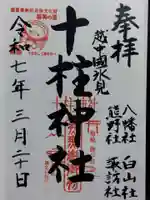 奉拝
越中國氷見
八幡社 白山社
熊野社 諏訪社
十柱神社
令和七年三月二十日